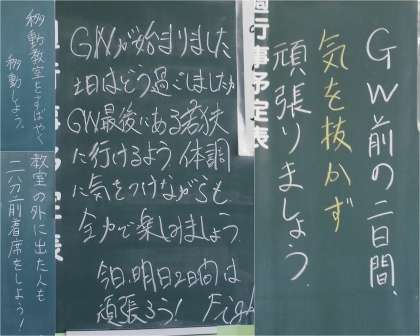 移動教室をすばやく
移動しよう。
教室の外に出た人も
二分前着席をしよう！
週行事予定表
GWが始まりました
土日はどう過ごしましたか
GW最後にある若狭
に行けるよう 体調
に気をつけながらも
全力で楽しみましょう。
今日、明日2日間は
頑張ろう！ Fight
週行事予定表
GW前の二日間、
気を抜かず
頑張りましょう。